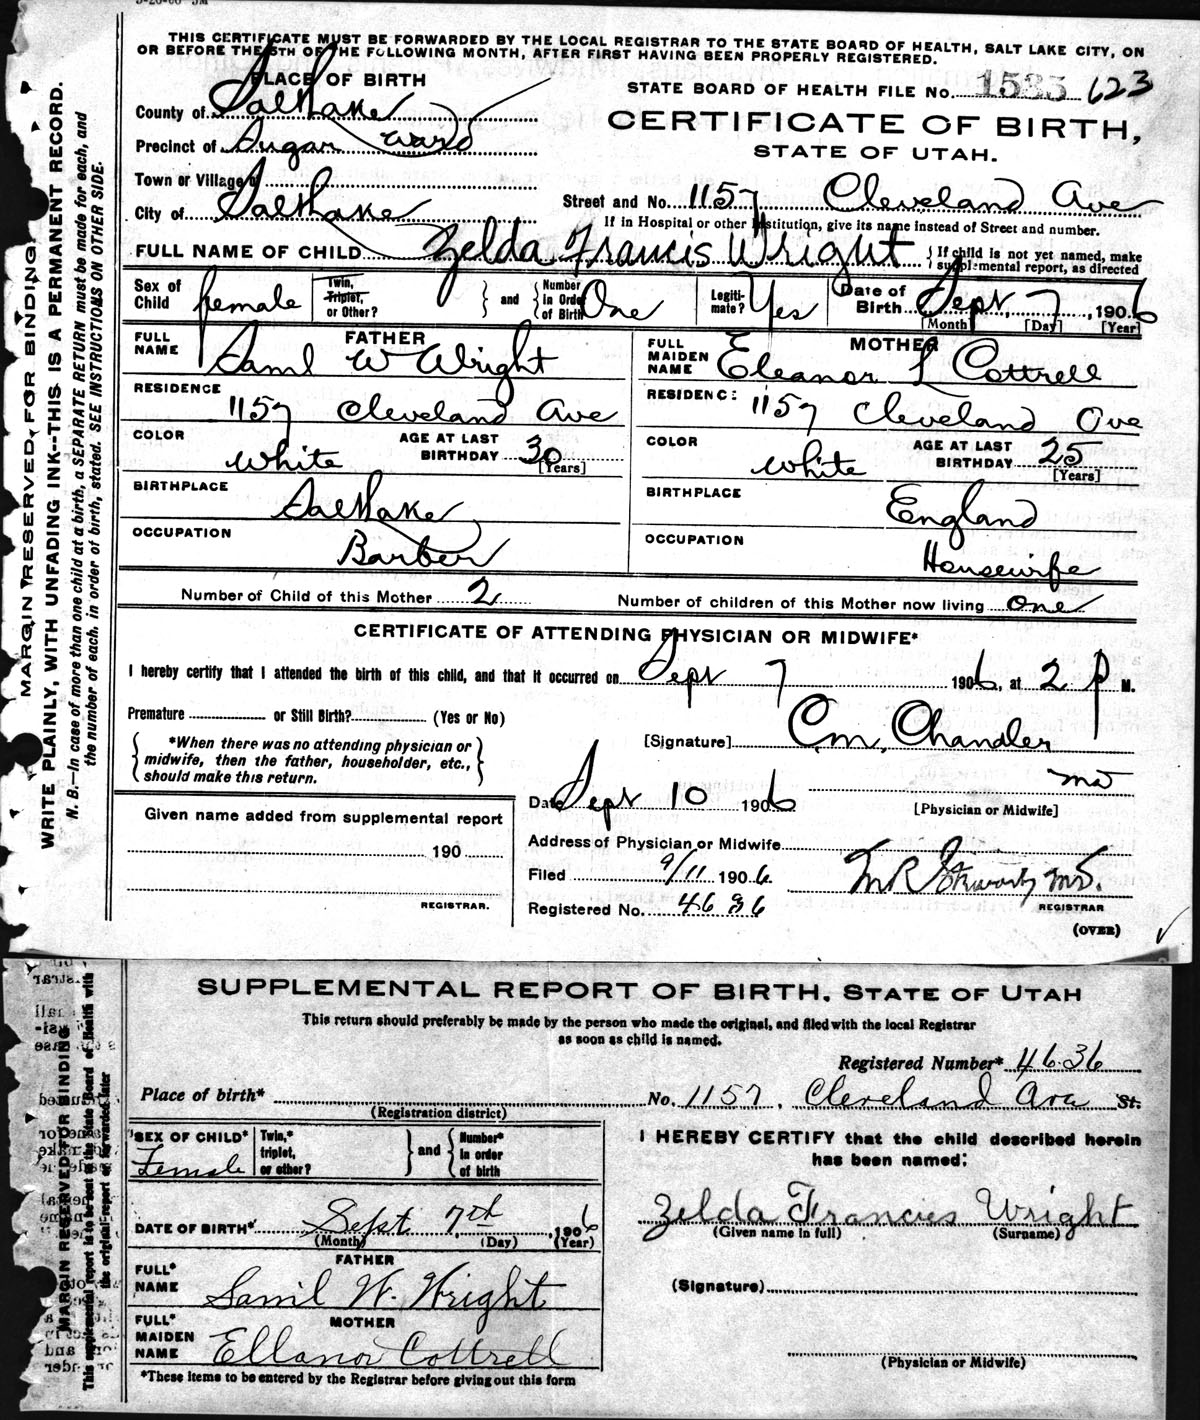 THIS CERTIFICATE MUST BE FORWARDED BY THE LOCAL REGISTRAR TO THE STATE BOARD OF HEALTH, SALT LAKE CITY, ON
OR BEFORE THE 5TH OF THE FOLLOWING MONTH, AFTER FIRST HAVING BEEN PROPERLY REGISTERED.
PLACE OF BIRTH
STATE BOARD OF HEALTH FILE NO. 1535 623
County of Salt Lake
CERTIFICATE OF BIRTH,
Precinct of Sugar Ward
STATE OF UTAH.
Town or Village of
City of Salt Lake
Street and No. 1157 Cleveland Ave
If in Hospital or other Institution, give its name instead of Street and number.
FULL NAME OF CHILD Zelda Francis Wright { If child is not yet named, make supplemental report, as directed
Sex of Child female Twin, Triplet, or Other? } and { Number in Order of Birth One Legiti-mate? Yes Date of Birth Sept 7, 1906
[Month] [Day] [Year]
FATHER
FULL NAME Saml W Wright
MOTHER
FULL MAIDEN NAME Eleanor L Cottrell
RESIDENCE 1157 Cleveland Ave
RESIDENCE: 1157 Cleveland Ave
COLOR White AGE AT LAST BIRTHDAY 30 [Years]
COLOR White AGE AT LAST BIRTHDAY 25 [Years]
BIRTHPLACE Salt Lake
BIRTHPLACE England
OCCUPATION Barber
OCCUPATION Housewife
Number of Child of this Mother 2 Number of children of this Mother now living one
CERTIFICATE OF ATTENDING PHYSICIAN OR MIDWIFE*
I hereby certify that I attended the birth of this child, and that it occurred on Sept 7 1906, at 2 P M.
Premature or Still Birth? (Yes or No)
{ *When there was no attending physician or midwife, then the father, householder, etc., should make this return. }
[Signature] C.M. Chandler
MD
[Physician or Midwife]
Date Sept 10 1906
Given name added from supplemental report
190
REGISTRAR.
Address of Physician or Midwife
Filed 9/11 1906
M.D.
REGISTRAR
Registered No. 4636
(OVER)
MARGIN RESERVED FOR BINDING.
WRITE PLAINLY, WITH UNFADING INK--THIS IS A PERMANENT RECORD.
N. B.—In case of more than one child at a birth, a SEPARATE RETURN must be made for each, and
the number of each, in order of birth, stated. SEE INSTRUCTIONS ON OTHER SIDE.
SUPPLEMENTAL REPORT OF BIRTH, STATE OF UTAH
This return should preferably be made by the person who made the original, and filed with the local Registrar
as soon as child is named.
Registered Number* 4636
Place of birth* No. 1157, Cleveland Ave St.
(Registration district)
SEX OF CHILD* Female Twin,* triplet, or other? } and { Number* in order of birth
I HEREBY CERTIFY that the child described herein
has been named:
DATE OF BIRTH* Sept 7th, 1906
(Month) (Day) (Year)
Zelda Francis Wright
(Given name in full) (Surname)
FATHER
FULL* NAME Samil W. Wright
(Signature)
MOTHER
FULL* MAIDEN NAME Ellanor Cottrell
(Physician or Midwife)
*These items to be entered by the Registrar before giving out this form
MARGIN RESERVED FOR BINDING
This supplemental report is to be sent to the State Board of Health with
the original report or forwarded later